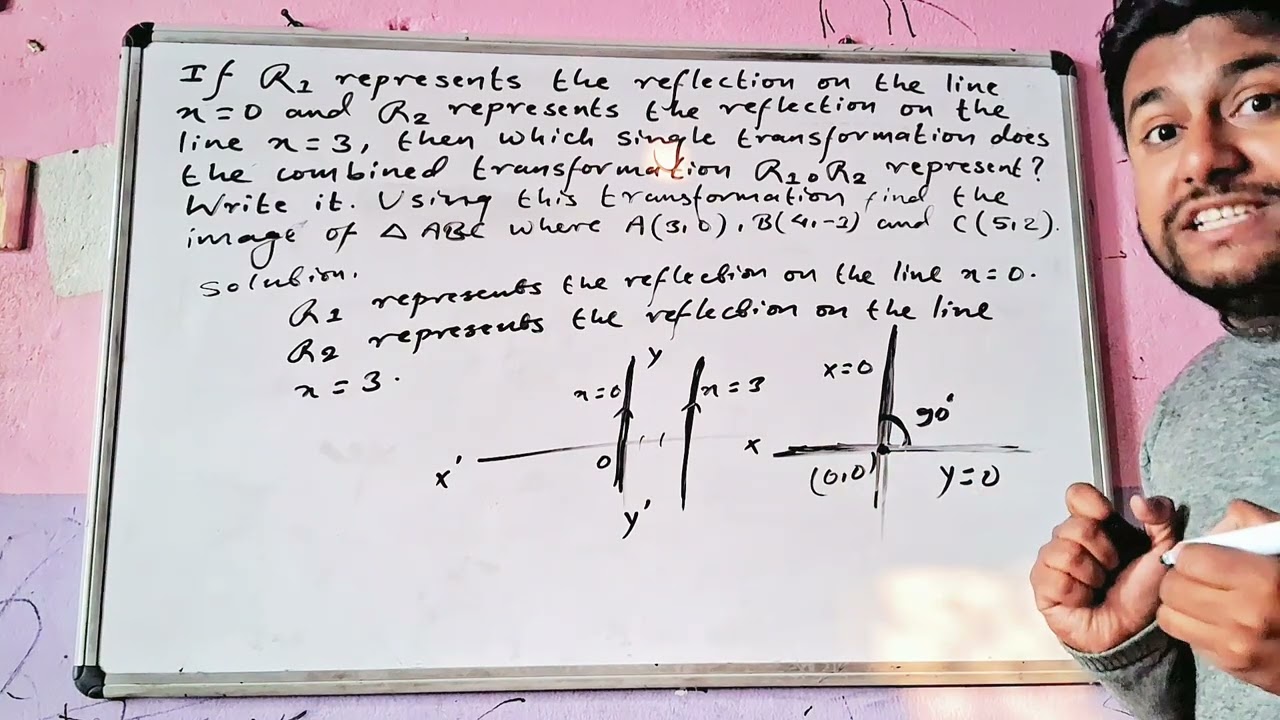 If R1 represents the reflection on the line
x=0 and R2 represents the reflection on the
line x=3, then which single transformation does
the combined transformation R1oR2 represent?
Write it. Using this transformation find the
image of △ ABC where A(3,0), B(4,-1) and C(5,2).
Solution.
R1 represents the reflection on the line x=0.
R2 represents the reflection on the line
x=3.
y
x=0
x=3
x'
0
y'
x=0
90°
x
(0,0)
y=0